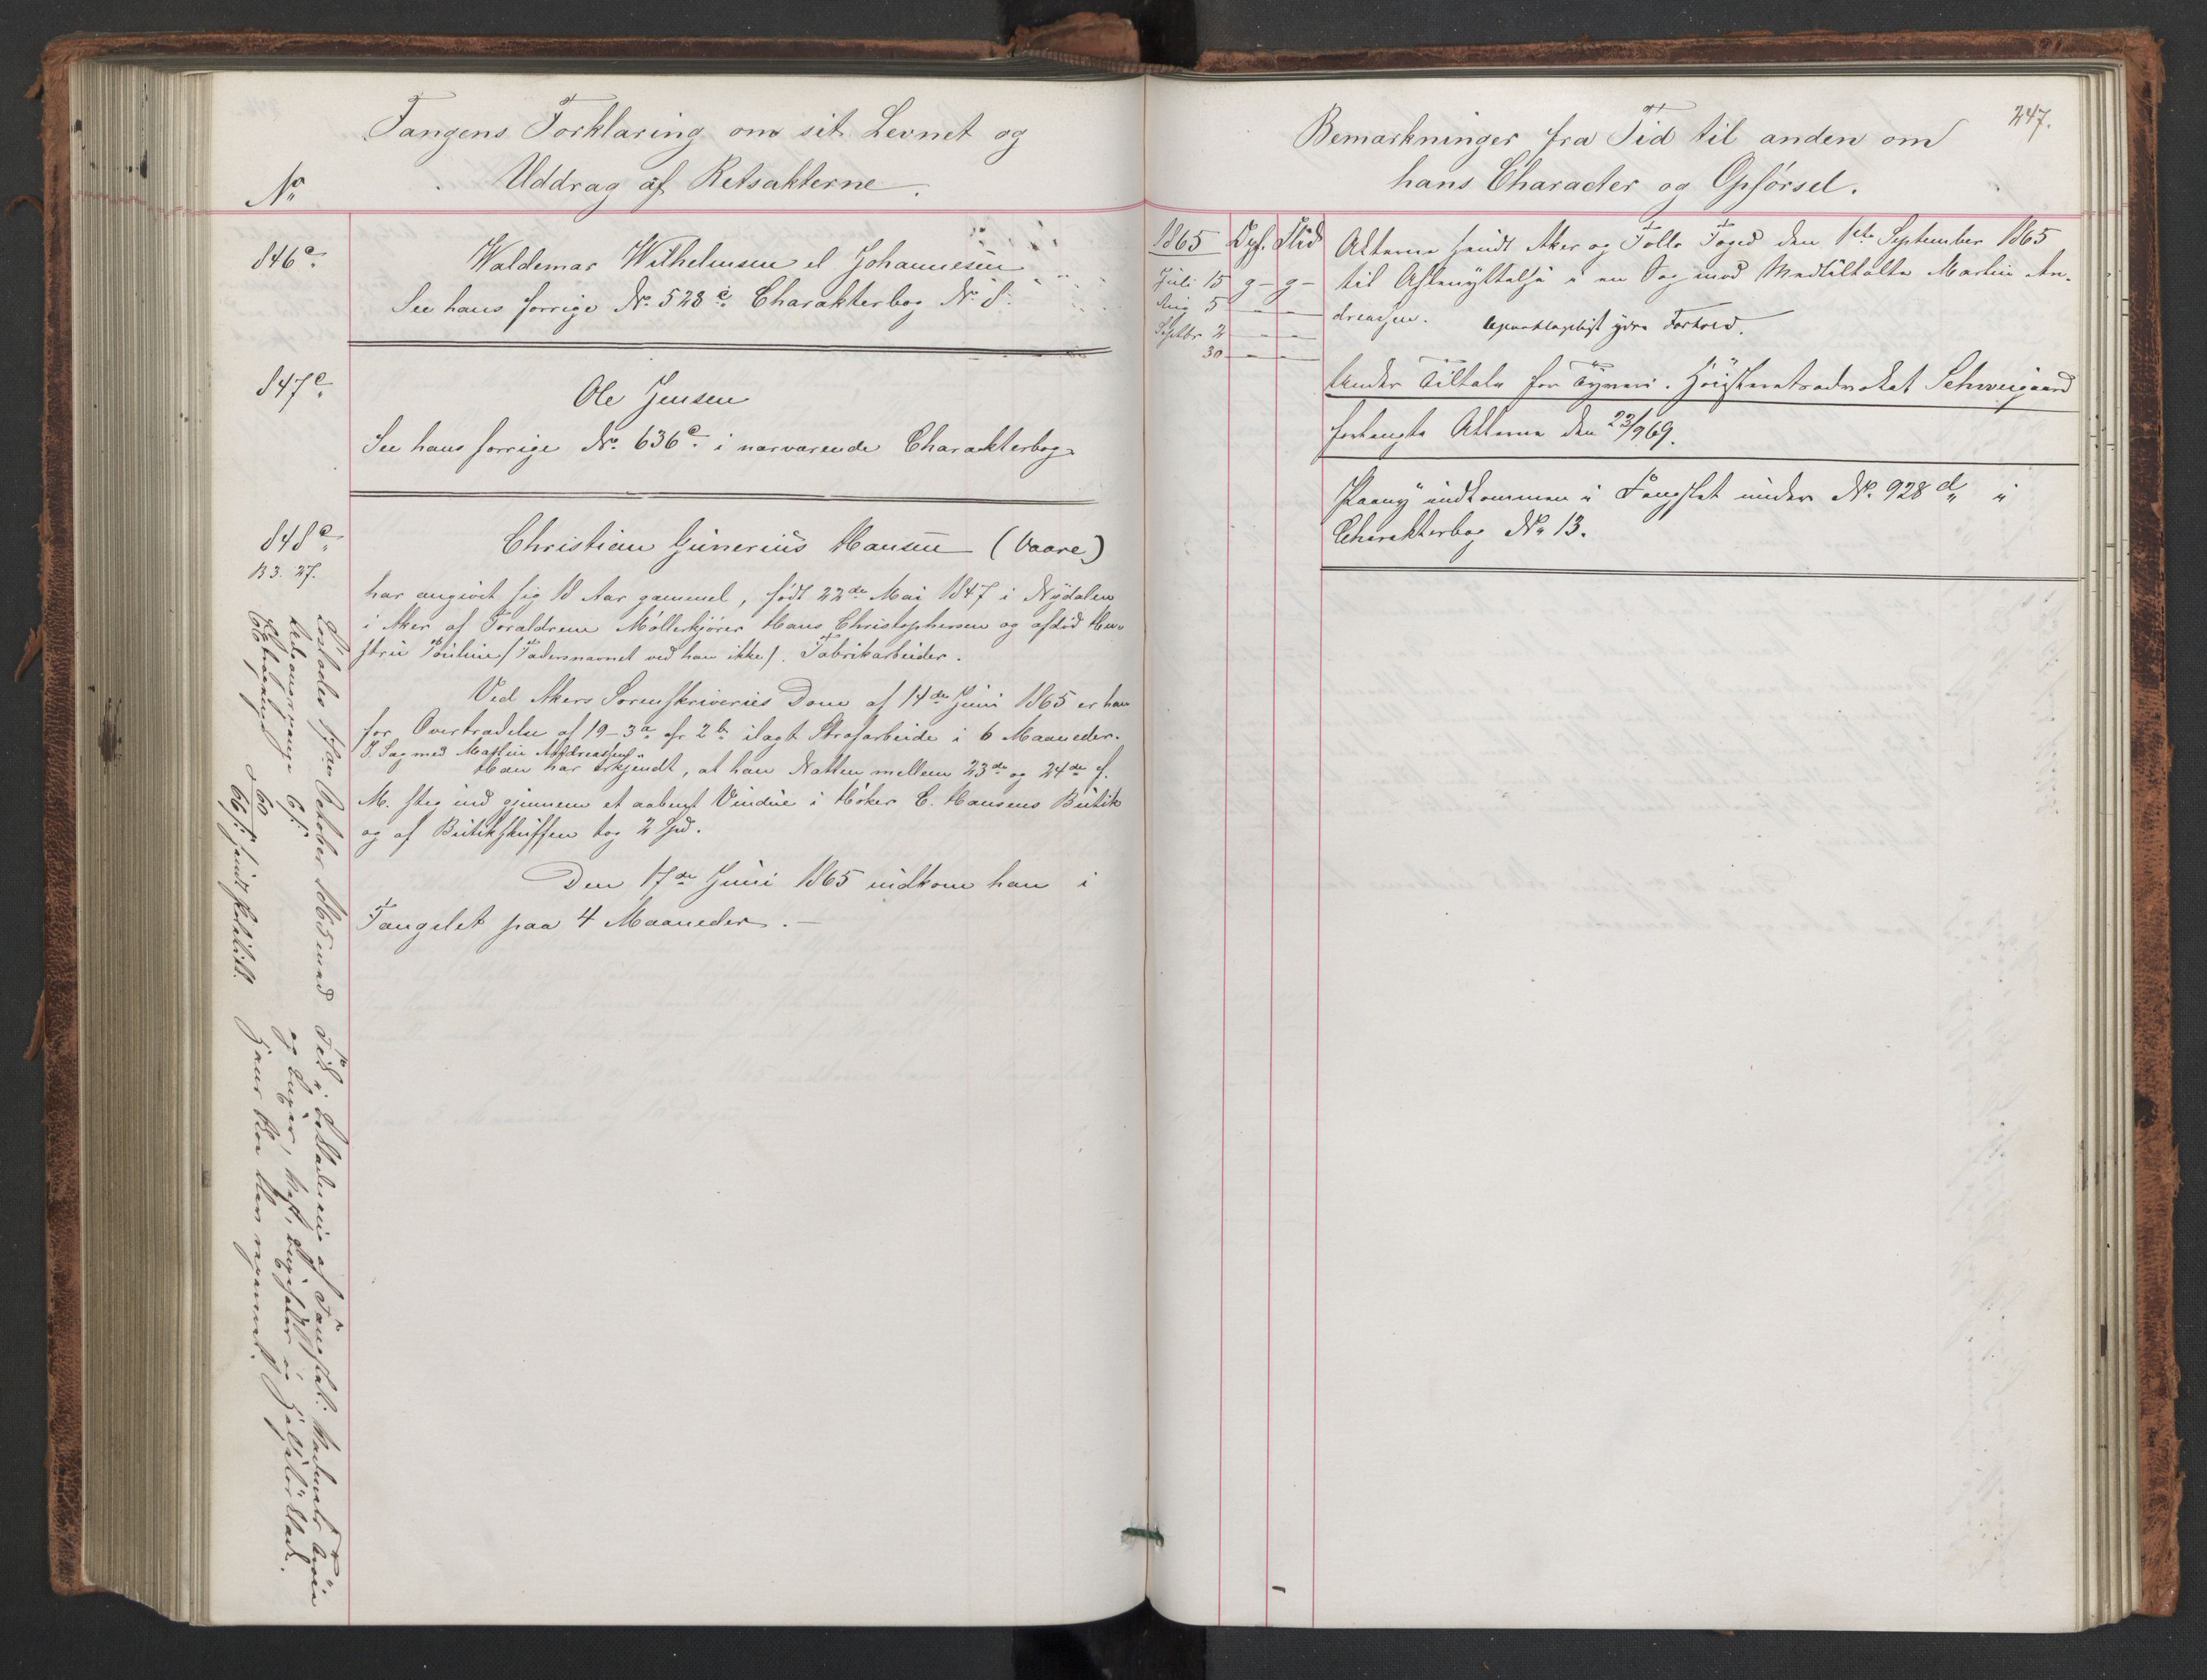 Fangens Forklaring om sit Levnet og
Uddrag af Retsakterne.
No
846c.
Waldemar Wilhelmsen el Johannesen
See hans forrige No. 528c. Charakterbog No. 8.
847c.
Ole Jensen
See hans forrige No. 636c. i nærværende Charakterbog.
848c.
B 3. 27.
Christian Gunerius Hansen (Vaare)
har angivet sig 18 Aar gammel, født 22de Mai 1847 i Nydalen
i Aker af Forældrene Møllerkjører Hans Christophersen og afdød Hu-
stru Pouline (Fadersnavnet ved han ikke). Fabrikarbeider.
Ved Akers Sorenskriveries Dom af 14de Juni 1865 er han
for Overtrædelse af 19-3a cfr 2b ilagt Strafarbeide i 6 Maaneder.
I Sag med Martin Andreassen.
Han har erkjendt, at han Natten mellem 23de og 24de f.
M. steg ind gjennem et aabent Vindue i Høker C. Hansens Butik
og af Butikskuffen tog 2 Spd.
Den 17de Juni 1865 indkom han i
Fangslet paa 4 Maaneder.
Løslades 17de October 1865 med
66 s. sendt
247.
Bemærkninger fra Tid til anden om
hans Character og Opførsel.
1865 Opf. Flid
Juli 15 g- g-
Aug 5 - -
Septbr 2 - -
30 - -
Akterne sendt Aker og Follo Foged den 1ste September 1865
til Afbenyttelse i en Sag mod Medtiltalte Martin An-
dreassen. Upaaklageligt ydre Forhold.
Under Tiltale for Tyveri. Høiesteretsadvokat Schweigaard
forlangte Akterne den 23/9 69.
Paany indkommen i Fangslet under No. 928d i
Charakterbog No. 13.